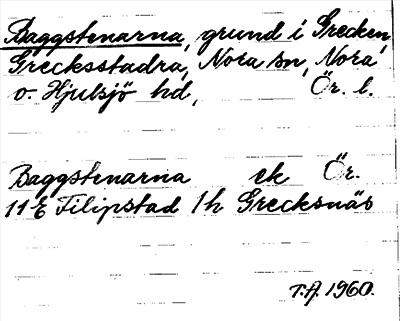 Baggstenarna, grund i Grecken,
Grecksstadra, Nora sn, Nora
o. Hjulsjö hd, Ör. l.
Baggstenarna ek Ör.
11 E Filipstad 1h Grecksnäs
T.A. 1960.